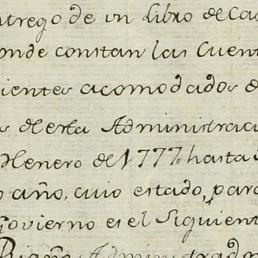 ntrego de un Libro de Ca
onde constan las Cuent
ientes acomodados d
s de esta Administrac
Henero de 1777 hasta
o año, cuio estado, para
Govierno es el Siguient
Administrador